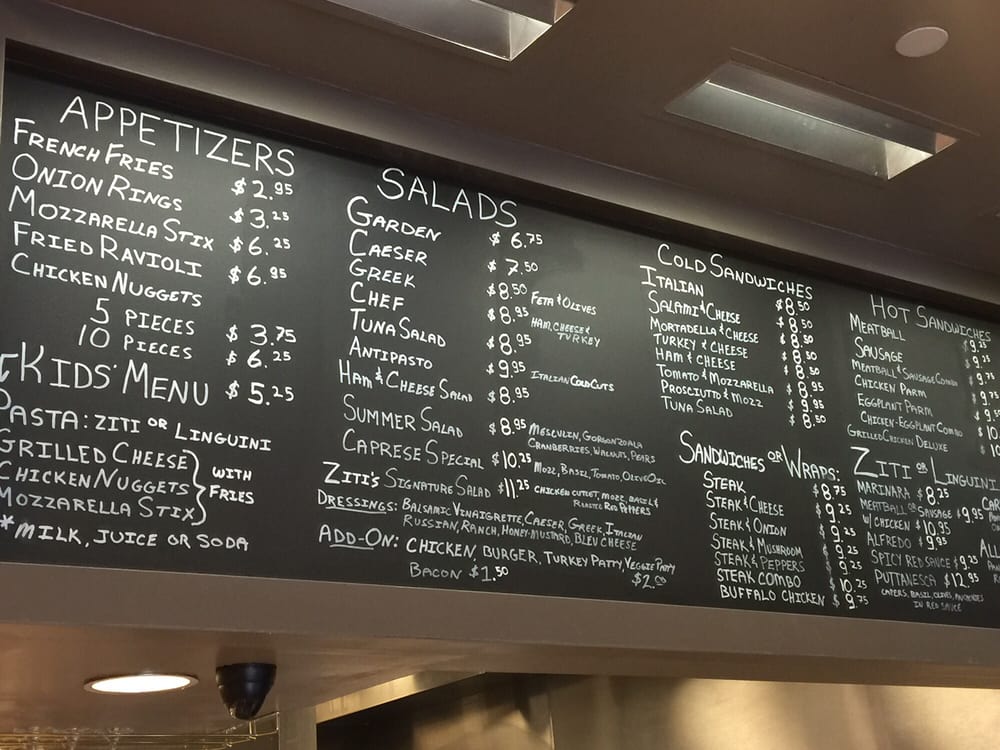 APPETIZERS
FRENCH FRIES $2.95
ONION RINGS $3.25
MOZZARELLA STIX $6.25
FRIED RAVIOLI $6.95
CHICKEN NUGGETS
5 PIECES $3.75
10 PIECES $6.25
KIDS' MENU $5.25
PASTA: ZITI OR LINGUINI
GRILLED CHEESE
CHICKEN NUGGETS
MOZZARELLA STIX
WITH
FRIES
*MILK, JUICE OR SODA
SALADS
GARDEN $6.75
CAESER $7.50
GREEK $8.50 FETA & OLIVES
CHEF $8.95 HAM, CHEESE &
TURKEY
TUNA SALAD $8.95
ANTIPASTO $9.95 ITALIAN COLD CUTS
HAM & CHEESE SALAD $8.95
SUMMER SALAD $8.95 MESCULIN, GORGONZOALA
CRANBERRIES, WALNUTS, PEARS
CAPRESE SPECIAL $10.25 MOZZ, BASIL, TOMATO, OLIVE OIL
ZITI'S SIGNATURE SALAD $11.25 CHICKEN CUTLET, MOZZ, BASIL &
ROASTED RED PEPPERS
DRESSINGS: BALSAMIC VINAIGRETTE, CAESER, GREEK, ITALIAN
RUSSIAN, RANCH, HONEY-MUSTARD, BLEU CHEESE
ADD-ON: CHICKEN, BURGER, TURKEY PATTY, VEGGIE PATTY
BACON $1.50 $2.00
COLD SANDWICHES
ITALIAN $8.50
SALAMI & CHEESE $8.50
MORTADELLA & CHEESE $8.50
TURKEY & CHEESE $8.50
HAM & CHEESE $8.50
TOMATO & MOZZARELLA $8.95
PROSCIUTTO & MOZZ $9.95
TUNA SALAD $8.50
SANDWICHES OR WRAPS:
STEAK $8.75
STEAK & CHEESE $9.25
STEAK & ONION $9.25
STEAK & MUSHROOM $9.25
STEAK & PEPPERS $9.25
STEAK COMBO $10.25
BUFFALO CHICKEN $9.75
HOT SANDWICHES
MEATBALL $9.25
SAUSAGE $9.25
MEATBALL & SAUSAGE COMBO $9.75
CHICKEN PARM
EGGPLANT PARM
CHICKEN-EGGPLANT COMBO
GRILLED CHICKEN DELUXE
ZITI OR LINGUINI
MARINARA $8.25
MEATBALL OR SAUSAGE $9.95
W/ CHICKEN $10.95
ALFREDO $9.95
SPICY RED SAUCE $9.25
PUTTANESCA $12.95
CAPERS, BASIL, OLIVES, ANCHOVIES
IN RED SAUCE